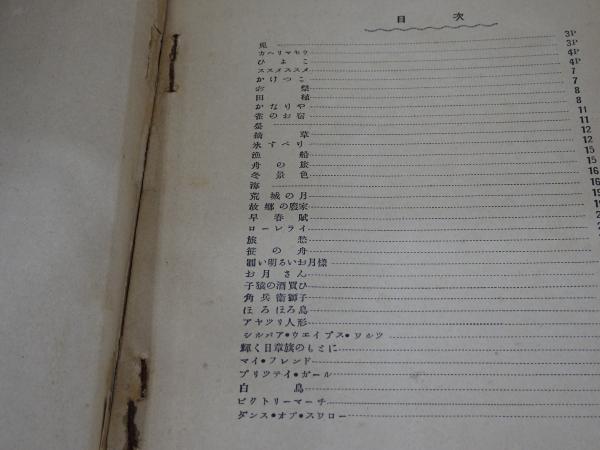 目次
兎 3P
カヘリマセウ 3P
ひよこ 4P
ススメススメ 4P
かけつこ 7
お祭 7
田植 8
かなりや 8
雀のお宿 11
螢 11
摘草 12
氷すべり 12
漁船 15
舟の旅 15
冬景色 16
海 16
荒城の月
故郷の廢家
早春賦
ローレライ
旅愁
笹の舟
圓い明るいお月様
お月さん
子猿の酒買ひ
角兵衛獅子
ほろほろ鳥
アヤツリ人形
シルバア・ウエイブス・ワルツ
輝く日章旗のもとに
マイ・フレンド
プリツテイ・ガール
白鳥
ビクトリーマーチ
ダンス・オブ・スワロー